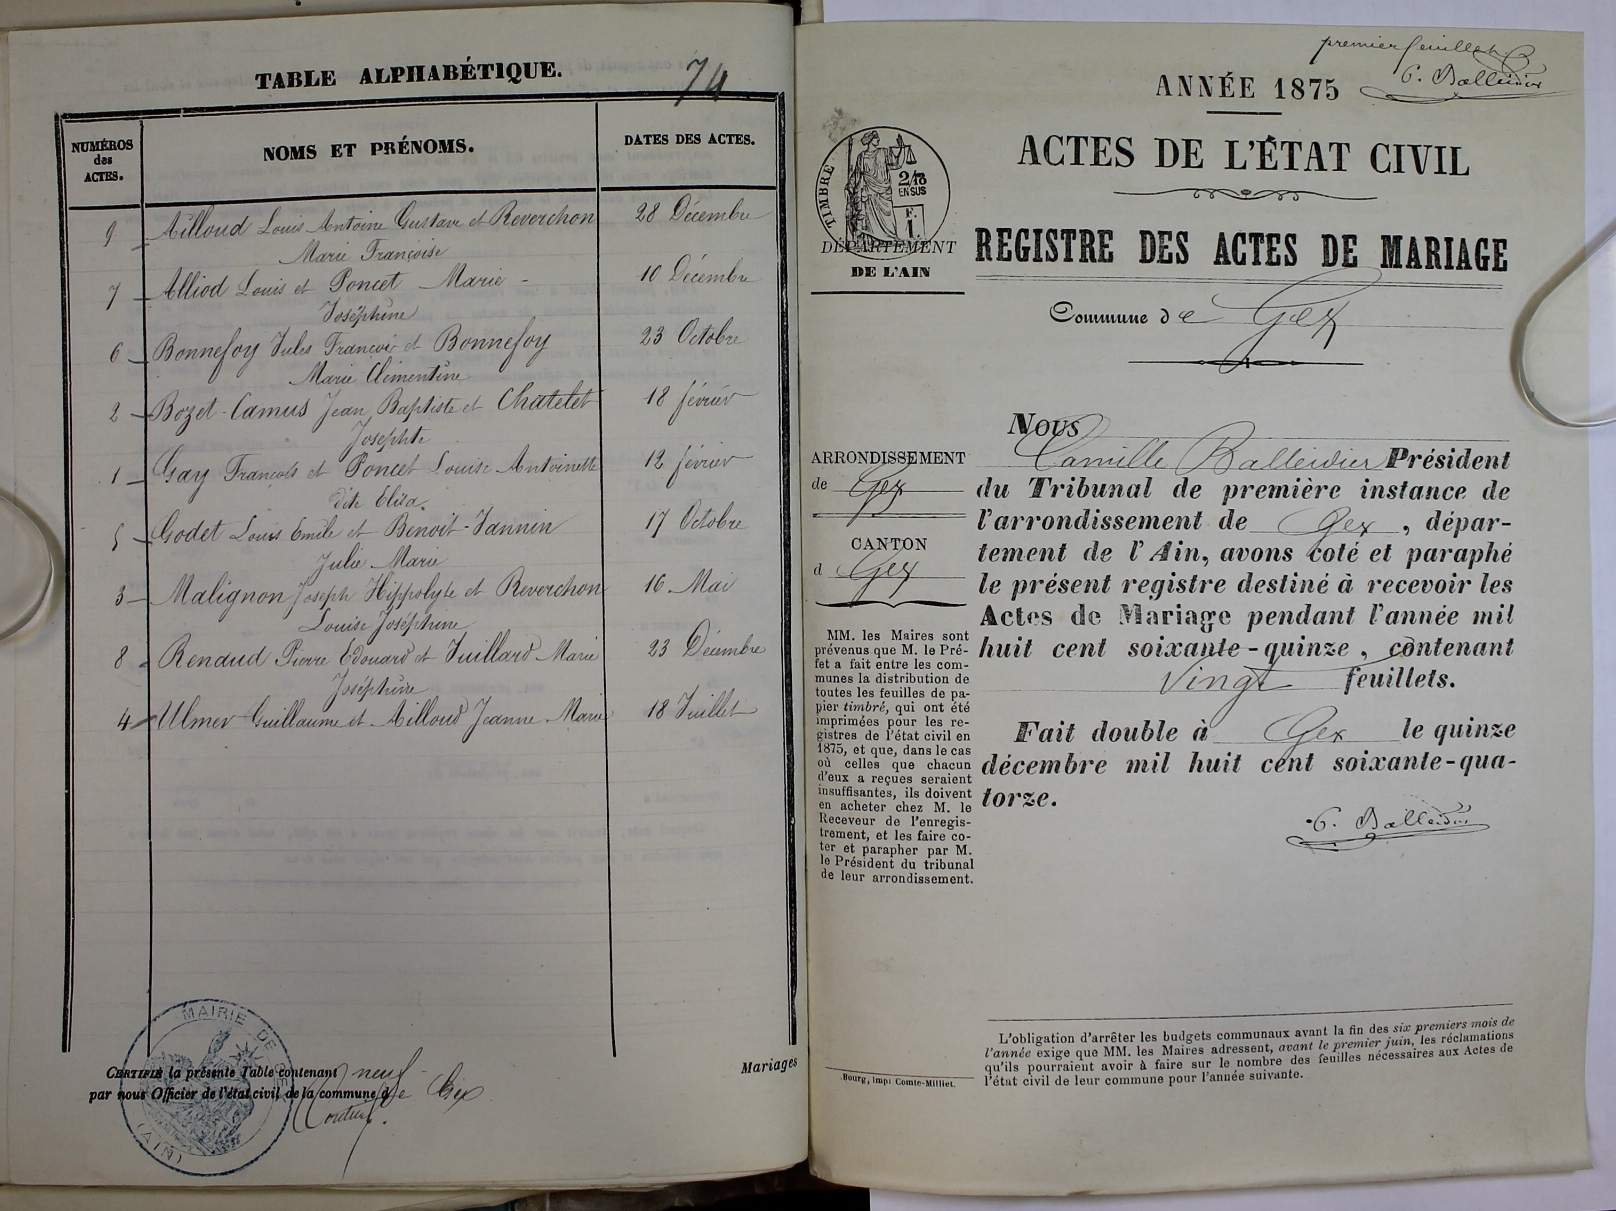 TABLE ALPHABÉTIQUE.
74
NUMÉROS
des
ACTES.
NOMS ET PRÉNOMS.
DATES DES ACTES.
9 Ailloud Louis Antoine Gustave et Reverchon 28 Décembre
Marie Françoise
7 Alliod Louis et Poncet Marie 10 Décembre
Joséphine
6 Bonnefoy Jules François et Bonnefoy 23 Octobre
Marie Clémentine
2 Bozet-Camus Jean Baptiste et Chatelet 18 février
Josephte
1 Gay François et Poncet Louise Antoinette 12 février
dite Elisa.
5 Godet Louis Emile et Benoit-Jannin 17 Octobre
Julie Marie
3 Malignon Joseph Hippolyte et Reverchon 16 Mai
Louise Joséphine
8 Renaud Pierre Edouard et Juillard Marie 23 Décembre
Joséphine
4 Ulmer Guillaume et Ailloud Jeanne Marie 18 Juillet
MAIRIE DE GEX
(AIN)
CERTIFIÉ la présente Table contenant neuf
Mariages
par nous Officier de l'état civil de la commune de Gex
premier feuillet
C. Balleidier
ANNÉE 1875
ACTES DE L'ÉTAT CIVIL
TIMBRE
2/10
EN SUS
F.
1.
DÉPARTEMENT
DE L'AIN
REGISTRE DES ACTES DE MARIAGE
Commune de Gex
Nous
Camille Balleidier Président
du Tribunal de première instance de
l'arrondissement de Gex, dépar-
tement de l'Ain, avons coté et paraphé
le présent registre destiné à recevoir les
Actes de Mariage pendant l'année mil
huit cent soixante-quinze, contenant
Vingt feuillets.
Fait double à Gex le quinze
décembre mil huit cent soixante-qua-
torze.
C. Balleidier
ARRONDISSEMENT
de Gex
CANTON
d Gex
MM. les Maires sont
prévenus que M. le Pré-
fet a fait entre les com-
munes la distribution de
toutes les feuilles de pa-
pier timbré, qui ont été
imprimées pour les re-
gistres de l'état civil en
1875, et que, dans le cas
où celles que chacun
d'eux a reçues seraient
insuffisantes, ils doivent
en acheter chez M. le
Receveur de l'enregis-
trement, et les faire co-
ter et parapher par M.
le Président du tribunal
de leur arrondissement.
Bourg, imp. Comte-Milliet.
L'obligation d'arrêter les budgets communaux avant la fin des six premiers mois de
l'année exige que MM. les Maires adressent, avant le premier juin, les réclamations
qu'ils pourraient avoir à faire sur le nombre des feuilles nécessaires aux Actes de
l'état civil de leur commune pour l'année suivante.